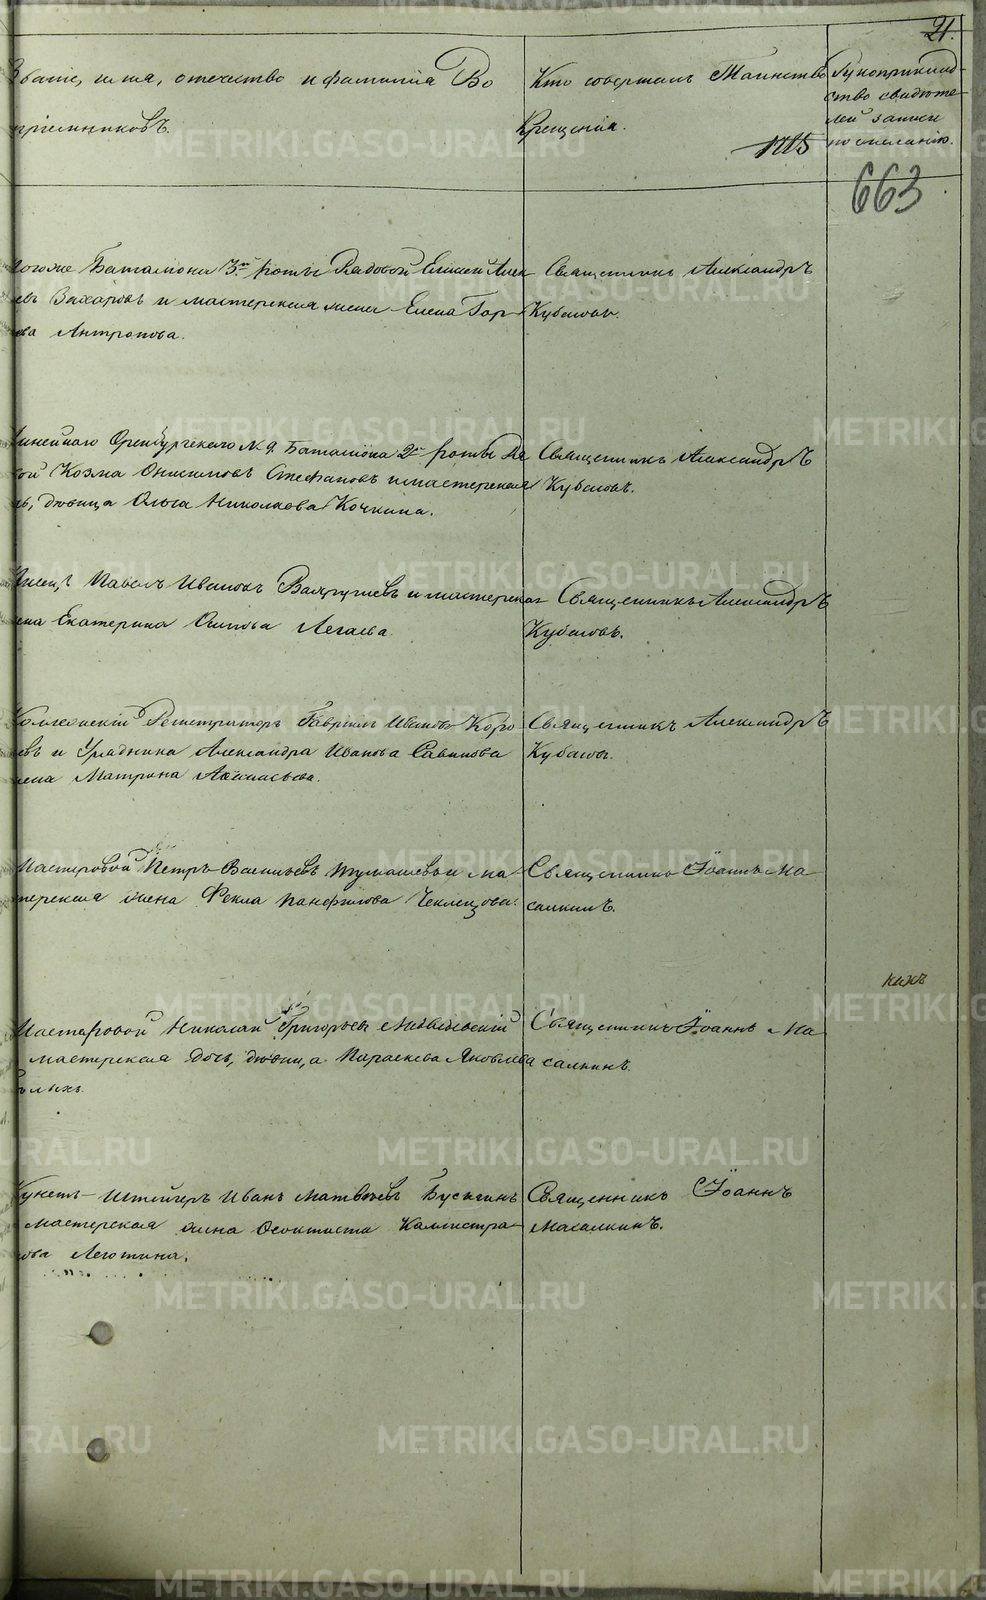 21.
Званіе, имя, отечество и фамилія Во
спріемниковъ.
Кто совершалъ Таинство
Крещенія.
Рукоприклад-
ство свидѣте-
лей записи
по желанію.
663
Баталіона 3й роты Рядовой Елисей Алек
Захаровъ и мастерская жена Елена Гор
ва Антропова.
Священникъ Александръ
Кубасовъ.
Линейнаго Оренбургскаго № 9. Баталіона 2й роты
вой Козма Онисимовъ Стефановъ и мастерская
дѣвица Ольга Николаева Кочкина.
Священникъ Александръ
Кубасовъ.
Павелъ Ивановъ Вахрушевъ и мастерская
жена Екатерина Осипова Легаева.
Священникъ Александръ
Кубасовъ.
Коллежскій Регистраторъ Гавріилъ Ивановъ Коро
евъ и Урядника Александра Иванова Савинова
жена Матрона Аѳанасьева.
Священникъ Александръ
Кубасовъ.
Мастеровой Петръ Васильевъ Тумашевъ и ма
стерская жена Фекла Панфилова Чеклецова.
Священникъ Іоаннъ Ма
салкинъ.
Мастеровой Николай Григорьевъ
мастерская дочь, дѣвица Параскева Яковлева
Священникъ Іоаннъ Ма
салкинъ.
Унтеръ-Штейгеръ Иванъ Матвѣевъ Бусыгинъ
мастерская жена Ѳеоктиста Калистра
това Леготина.
Священникъ Іоаннъ
Масалкинъ.
METRIKI.GASO-URAL.RU